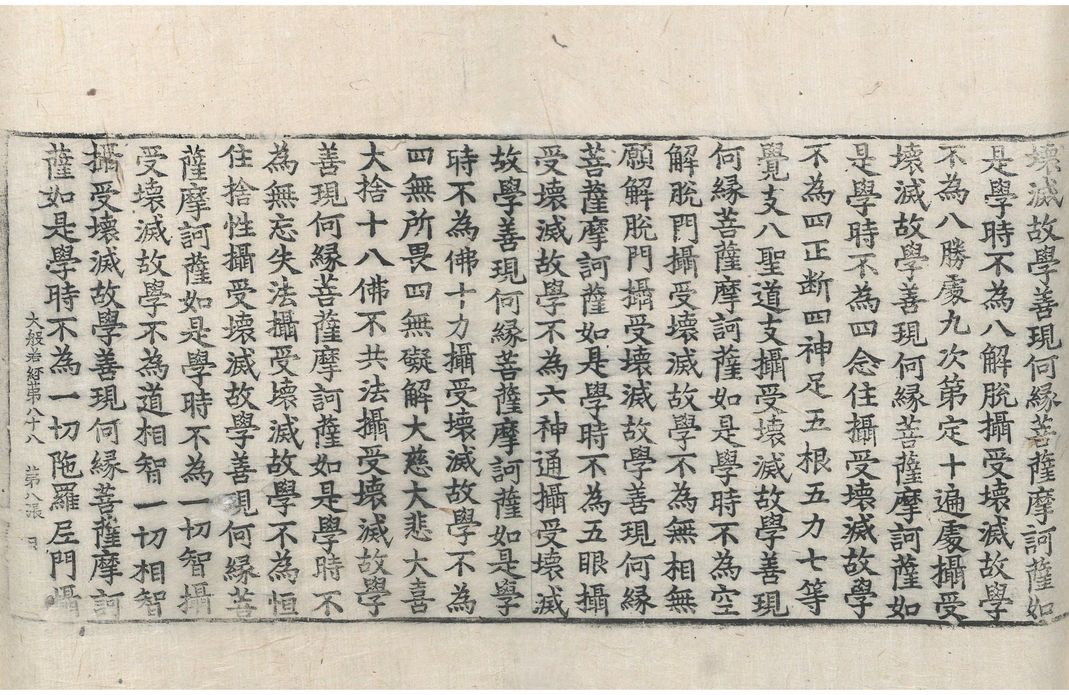 壞滅故學善現何緣菩薩摩訶薩如
是學時不為八解脫攝受壞滅故學
不為八勝處九次第定十遍處攝受
壞滅故學善現何緣菩薩摩訶薩如
是學時不為四念住攝受壞滅故學
不為四正斷四神足五根五力七等
覺支八聖道支攝受壞滅故學善現
何緣菩薩摩訶薩如是學時不為空
解脫門攝受壞滅故學不為無相無
願解脫門攝受壞滅故學善現何緣
菩薩摩訶薩如是學時不為五眼攝
受壞滅故學不為六神通攝受壞滅
故學善現何緣菩薩摩訶薩如是學
時不為佛十力攝受壞滅故學不為
四無所畏四無礙解大慈大悲大喜
大捨十八佛不共法攝受壞滅故學
善現何緣菩薩摩訶薩如是學時不
為無忘失法攝受壞滅故學不為恒
住捨性攝受壞滅故學善現何緣菩
薩摩訶薩如是學時不為一切智攝
受壞滅故學不為道相智一切相智
攝受壞滅故學善現何緣菩薩摩訶
薩如是學時不為一切陁羅尼門攝
大般若經第八十八 第八張